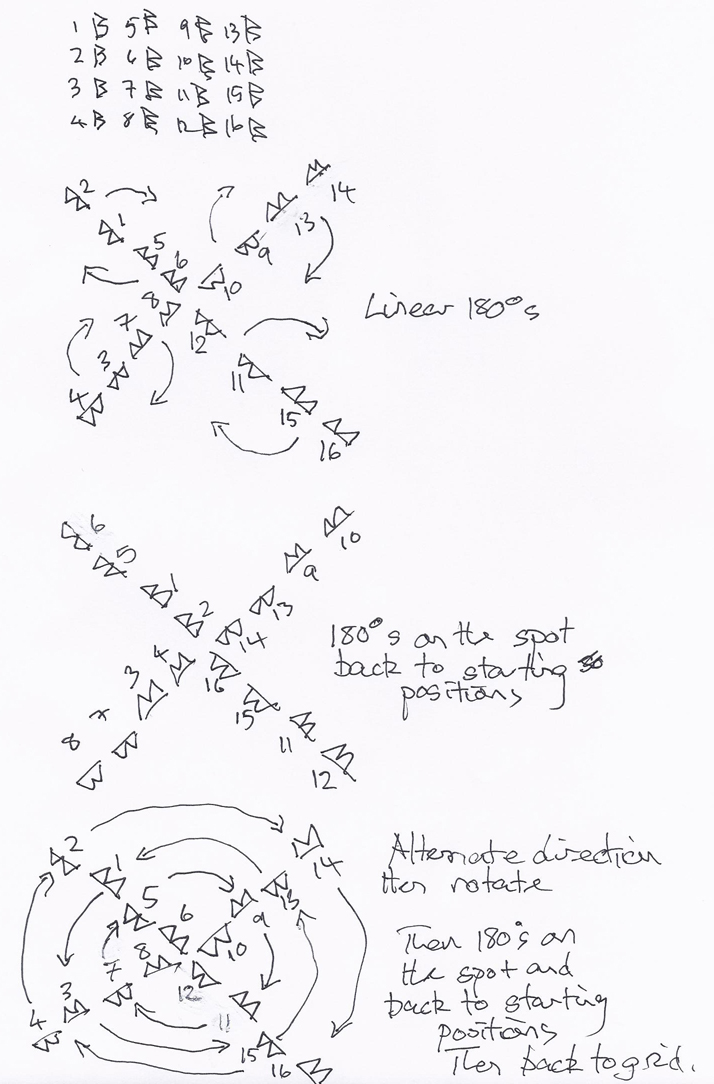 1 5 9 13
2 6 10 14
3 7 11 15
4 8 12 16
2 14
1 13
5 9
6 10
8
7 12
3 11
4 15
16
Linear 180°s
6 10
5 9
1 13
2 14
4 16
3 15
7 11
8 12
180°s on the spot
back to starting
positions
2 14
1 13
5 9
6 10
8
7 12
3 11
4 15
16
Alternate direction
then rotate
Then 180°s on
the spot and
back to starting
positions
Then back to grid.